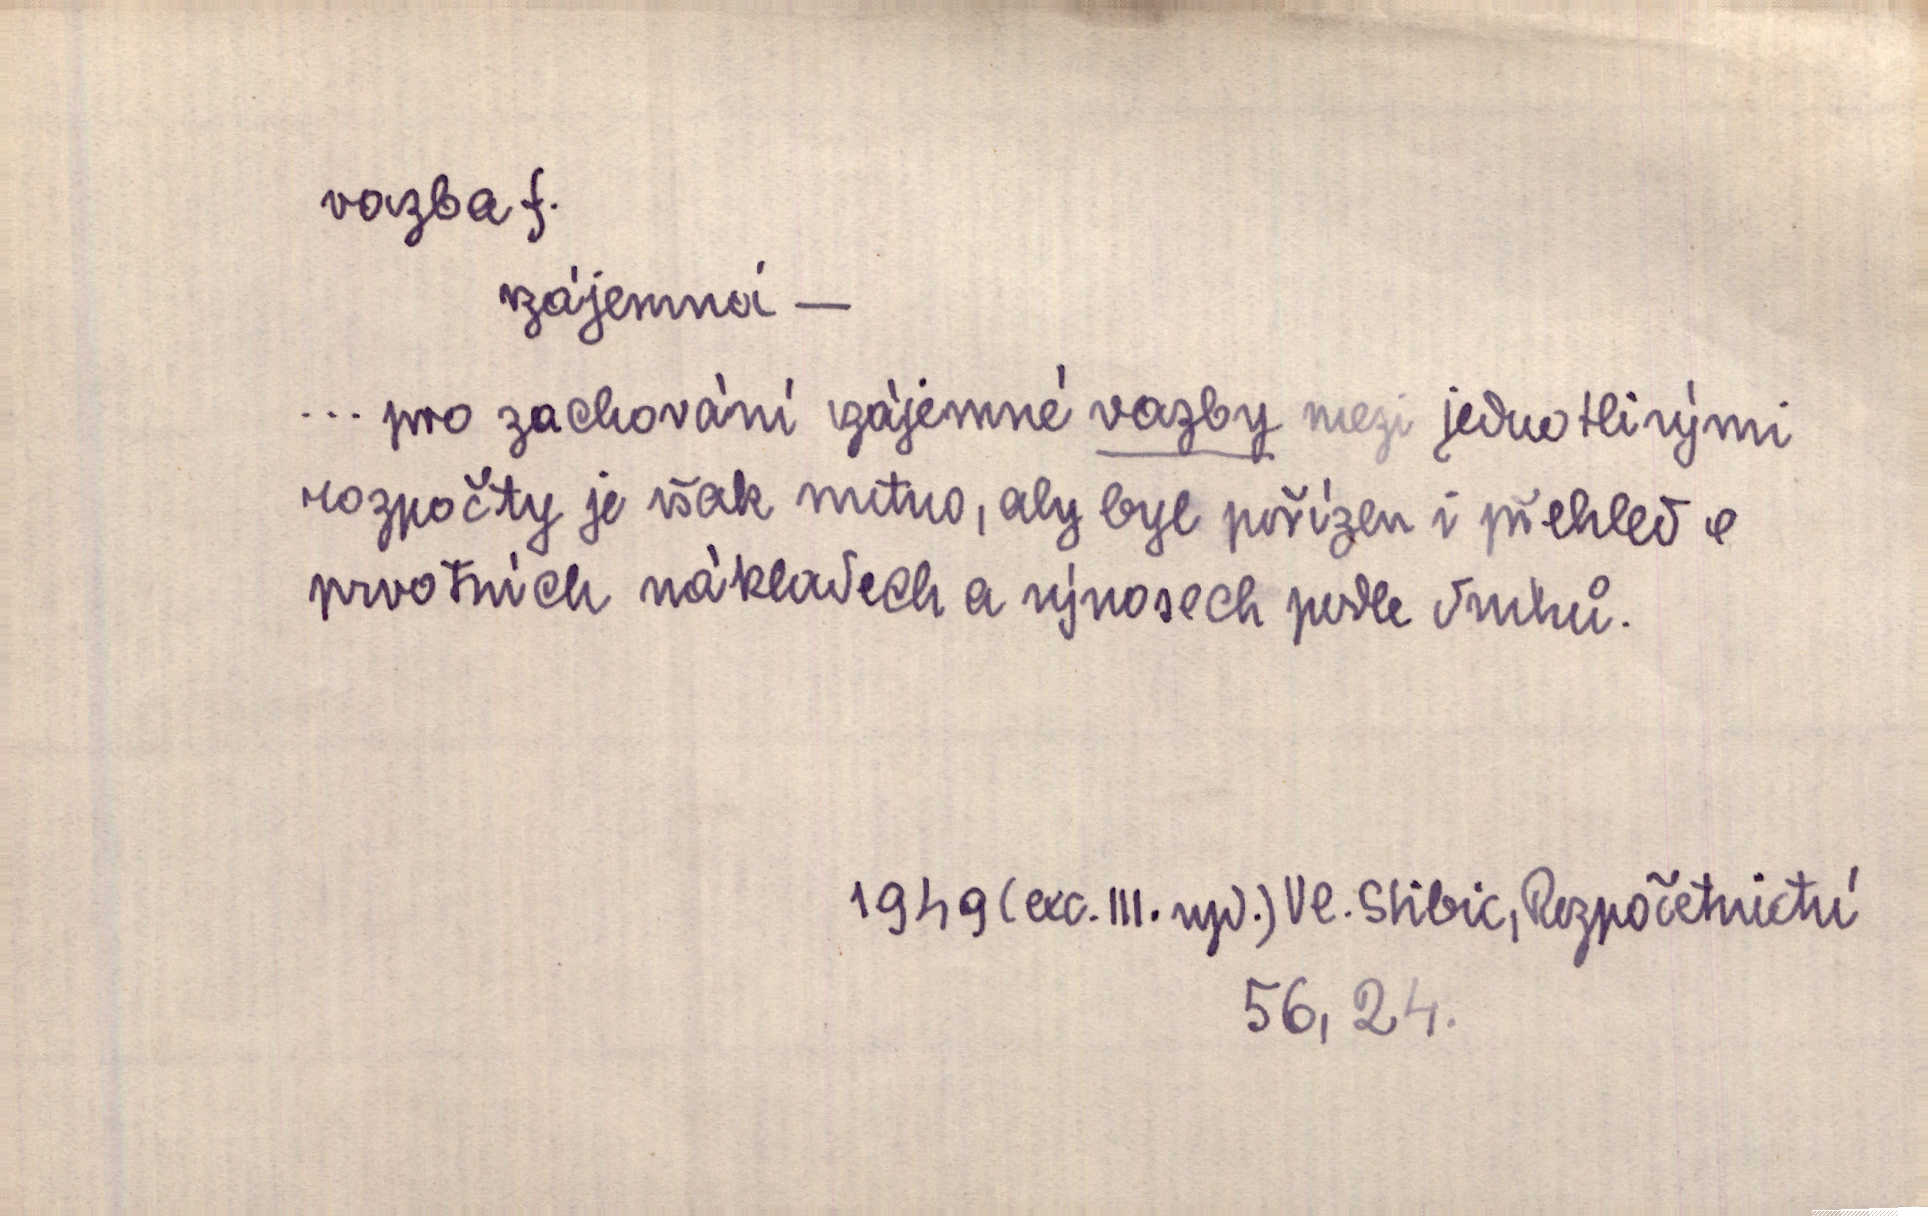 vazba f.
vzájemná —
... pro zachování vzájemné vazby mezi jednotlivými
rozpočty je však nutno, aby byl pořízen i přehled o
prvotních nákladech a výnosech podle druhů.
1949 (exc. III. vyd.) Vl. Stibic, Rozpočetnictví
56, 24.